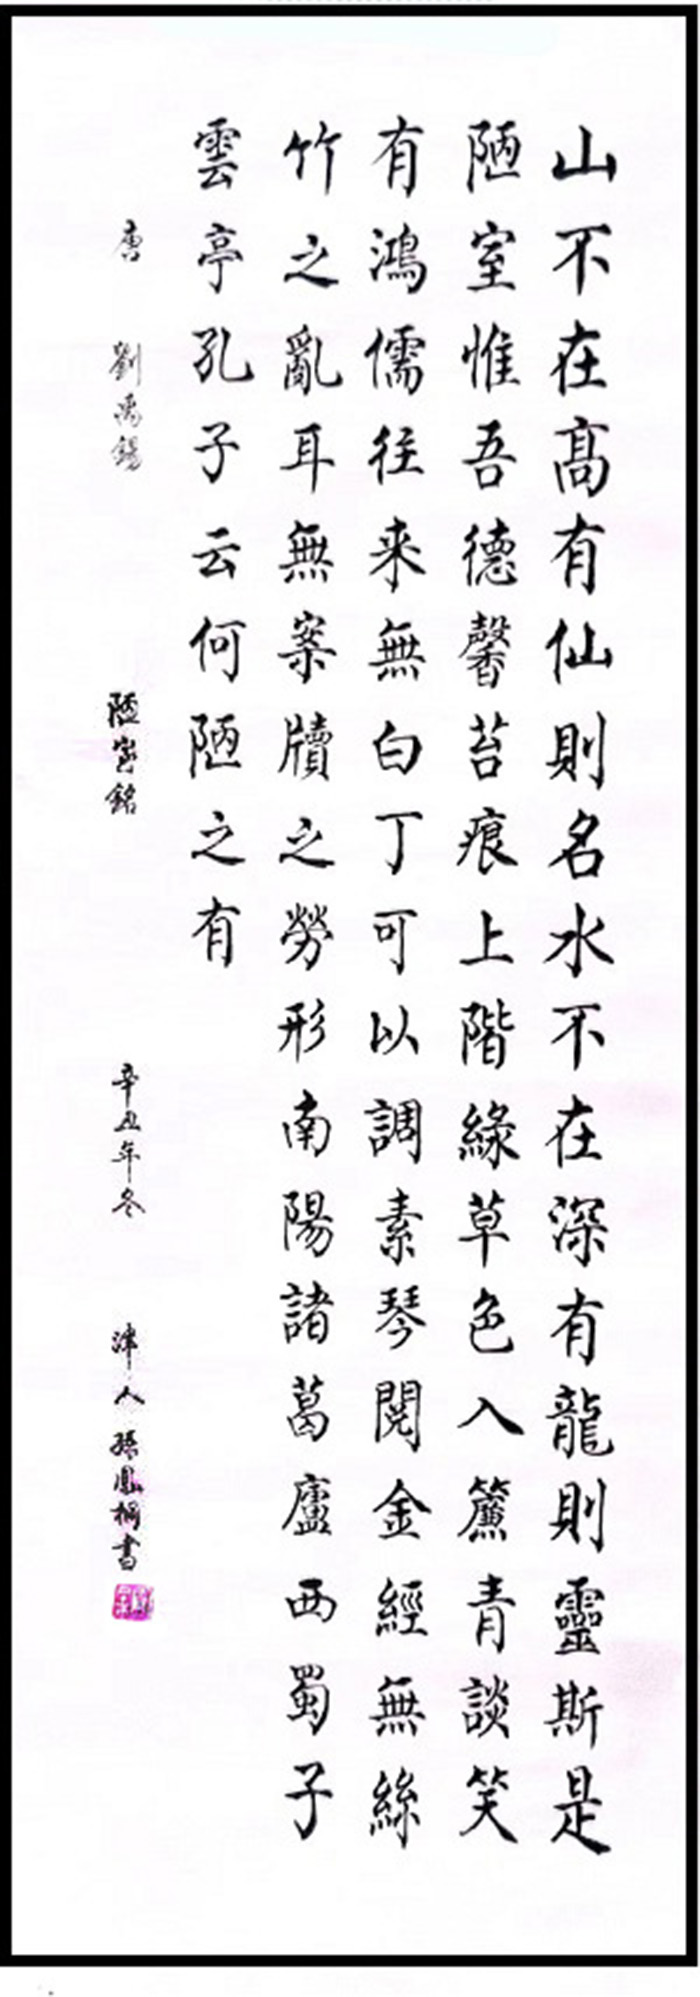 山不在高有仙則名水不在深有龍則靈斯是
陋室惟吾德馨苔痕上階緣草色入簾青談笑
有鴻儒往来無白丁可以調素琴閱金經無絲
竹之亂耳無案牘之勞形南陽諸葛廬西蜀子
雲亭孔子云何陋之有
唐 劉禹錫 陋室銘 辛丑年冬 津人孫鳳桐書